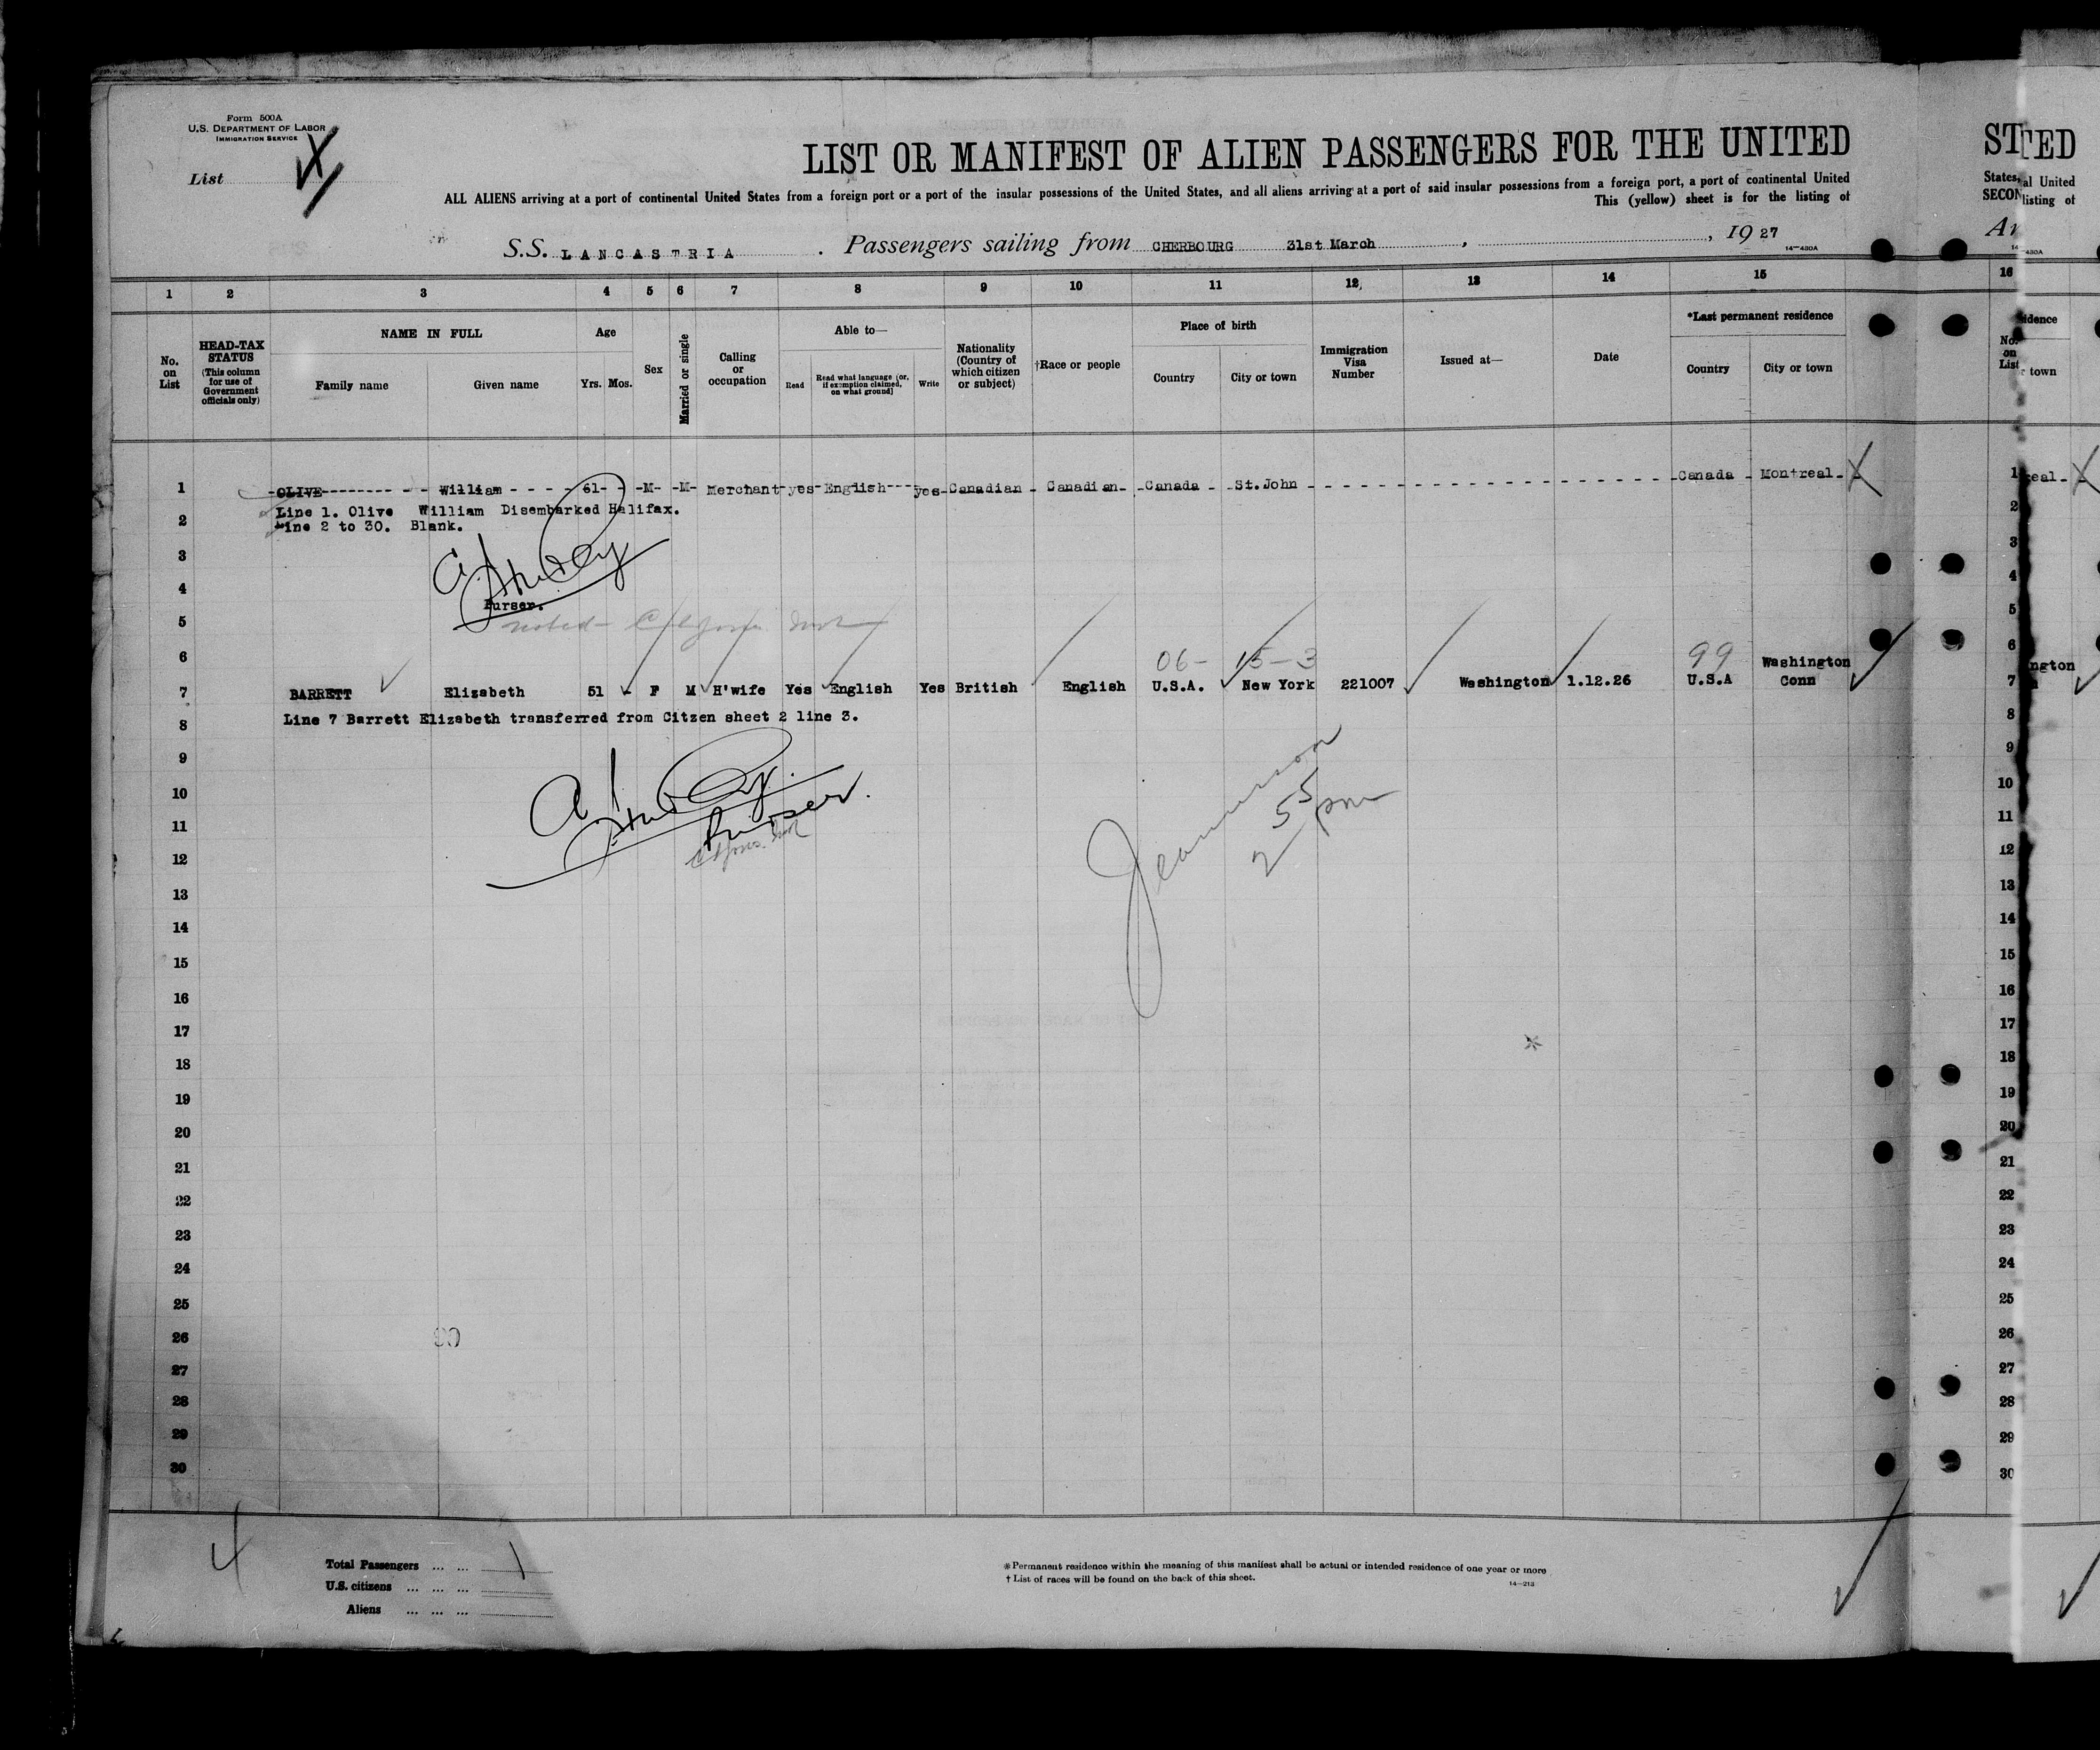 Form 500A
U.S. DEPARTMENT OF LABOR
IMMIGRATION SERVICE
List
LIST OR MANIFEST OF ALIEN PASSENGERS FOR THE UNITED
ALL ALIENS arriving at a port of continental United States from a foreign port or a port of the insular possessions of the United States, and all aliens arriving at a port of said insular possessions from a foreign port, a port of continental United
This (yellow) sheet is for the listing of
S.S. LANCASTRIA . Passengers sailing from CHERBOURG 31st March , , 19 27
14-430A
1 2 3 4 5 6 7 8 9 10 11 12 13 14 15
No. on List
HEAD-TAX STATUS (This column for use of Government officials only)
NAME IN FULL
Family name Given name
Age
Yrs. Mos.
Sex
Married or single
Calling or occupation
Able to—
Read
Read what language [or, if exemption claimed, on what ground]
Write
Nationality (Country of which citizen or subject)
†Race or people
Place of birth
Country City or town
Immigration Visa Number
Issued at—
Date
*Last permanent residence
Country City or town
1 OLIVE William 61 M M Merchant yes English yes Canadian Canadian Canada St.John Canada Montreal
Line 1. Olive William Disembarked Halifax.
2 Line 2 to 30. Blank.
3
4
Purser.
5 noted
6 06- 15-3 99
7 BARRETT Elizabeth 51 - F M H'wife Yes English Yes British English U.S.A. New York 221007 Washington 1.12.26 U.S.A Washington Conn
8 Line 7 Barrett Elizabeth transferred from Citzen sheet 2 line 3.
9
10
11 Purser.
12
13
14
15
16
17
18
19
20
21
22
23
24
25
26
27
28
29
30
4
Total Passengers ... ... 1
U.S. citizens ... ... ...
Aliens ... ... ...
*Permanent residence within the meaning of this manifest shall be actual or intended residence of one year or more
† List of races will be found on the back of this sheet.
14-213
ST TED
States, al United
SECON listing of
16
idence
No. on List
r town
1 real
2
3
4
5
6 ngton
7
8
9
10
11
12
13
14
15
16
17
18
19
20
21
22
23
24
25
26
27
28
29
30